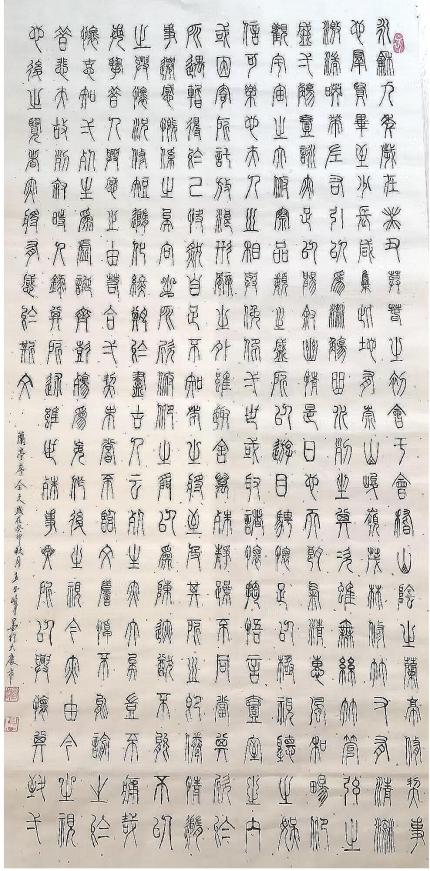 永龢九年歲在癸丑暮春之初會于會稽山陰之蘭亭脩稧事
也群賢畢至少長咸集此地有崇山峻嶺茂林脩竹又有清流
激湍暎帶左右引以為流觴曲水列坐其次雖無絲竹管弦之
盛弌觴弌詠亦足以暢敘幽情是日也天朗氣清惠風和暢仰
觀宇宙之大俯察品類之盛所以遊目騁懷足以極視聽之娛
信可樂也夫人之相與俯仰弌世或取諸懷抱悟言弌室之內
或因寄所託放浪形骸之外雖趣舍萬殊靜躁不同當其欣於
所遇暫得於己怏然自足不知老之將至及其所之既惓情隨
事遷感慨係之矣向之所欣俯仰之間以為陳迹猶不能不以
之興懷況脩短隨化終期於盡古人云死生亦大矣豈不痛哉
每攬昔人興感之由若合弌契未嘗不臨文嗟悼不能喻之於
懷固知弌死生為虛誕齊彭殤為妄作後之視今亦由今之視
昔悲夫故列敘時人錄其所述雖世殊事異所以興懷其致弌
也後之覽者亦將有感於斯文
蘭亭序全文歲在癸卯秋月王書於大慶市